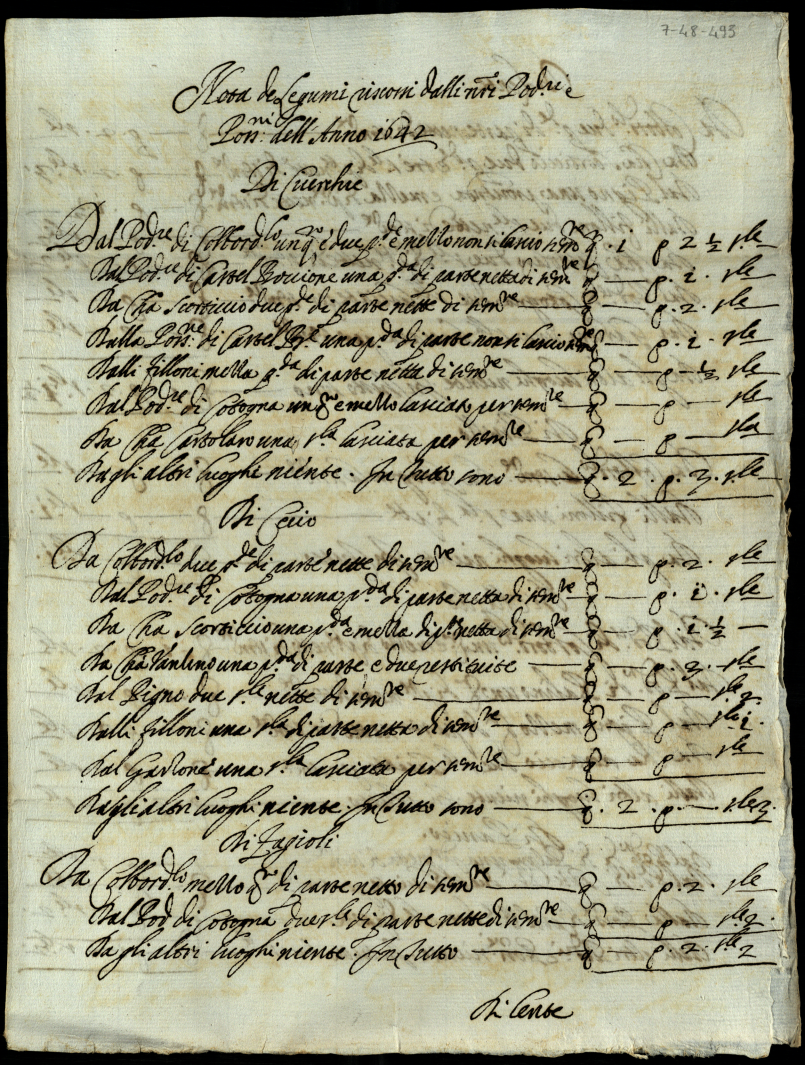 7-48-495
Nota de Legumi riscossi dalli nri Pod.ri e
Poss.ni dell'Anno 1642
Di Cicerchie
Dal Pod.re di Colbord.lo un q.ro e due p.de e mezzo non si lasciò sem.re q. i p. 2 ½ s.le
Dal Pod.re di Castel Boccione una p.da di parte netta di sem.re q — p. i. s.le
Da Cha Scorticcio due p.de di parte nette di sem.re q — p. 2. s.le
Dalla Poss.ne di Castel B.ne una p.da di parte non si lasciò sem.re q — p. i. s.le
Dalli Filloni mezza p.da di parte netta di sem.re q — p — ½ s.le
Dal Pod.re di Cotogna un q.ro e mezzo lasciato per sem.re q — p — s.le
Da Cha Cartolaro una s.la lasciata per sem.re q — p — s.la
Dagli altri luoghi niente. In tutto sono q. 2. p. 3. s.le
Di Cecio
Da Colbord.lo due p.de di parte nette di sem.re q — p. 2. s.le
Dal Pod.re di Cotogna una p.da di parte netta di sem.re q — p. i. s.le
Da Cha Scorticcio una p.da e mezza di p.te netta di sem.re q — p. i. ½ —
Da Cha Vanlino una p.da di parte e due restituite q — p. 3. s.le
Dal Pigno due s.le nette di sem.re q — p — s.le 2.
Dalli Filloni una s.la di parte netta di sem.re q — p — s.le i.
Dal Garzone una s.la lasciata per sem.re q — p — s.le
Dagli altri luoghi niente. In tutto sono q. 2. p. — s.le 3.
Di Fagioli
Da Colbord.lo mezzo q.ro di parte netto di sem.re q — p. 2. s.le
Dal Pod. di Cotogna due s.le di parte nette di sem.re q — p — s.le 2.
Dagli altri luoghi niente. In tutto q — p. 2. s.le 2
Di Lente